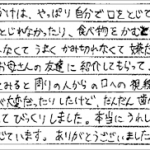 かけは、やっぱり自分で口をとじて
とじれなかったり、食べ物をかむと
したくてうまくかみ切れなくて嫌だ
お母さんの友達に紹介してもらって、
てみると周りの人からの口への視線
が大変だったりしたけど、だんだん歯
てびっくりしました。本当にうれし
ています。ありがとうございました